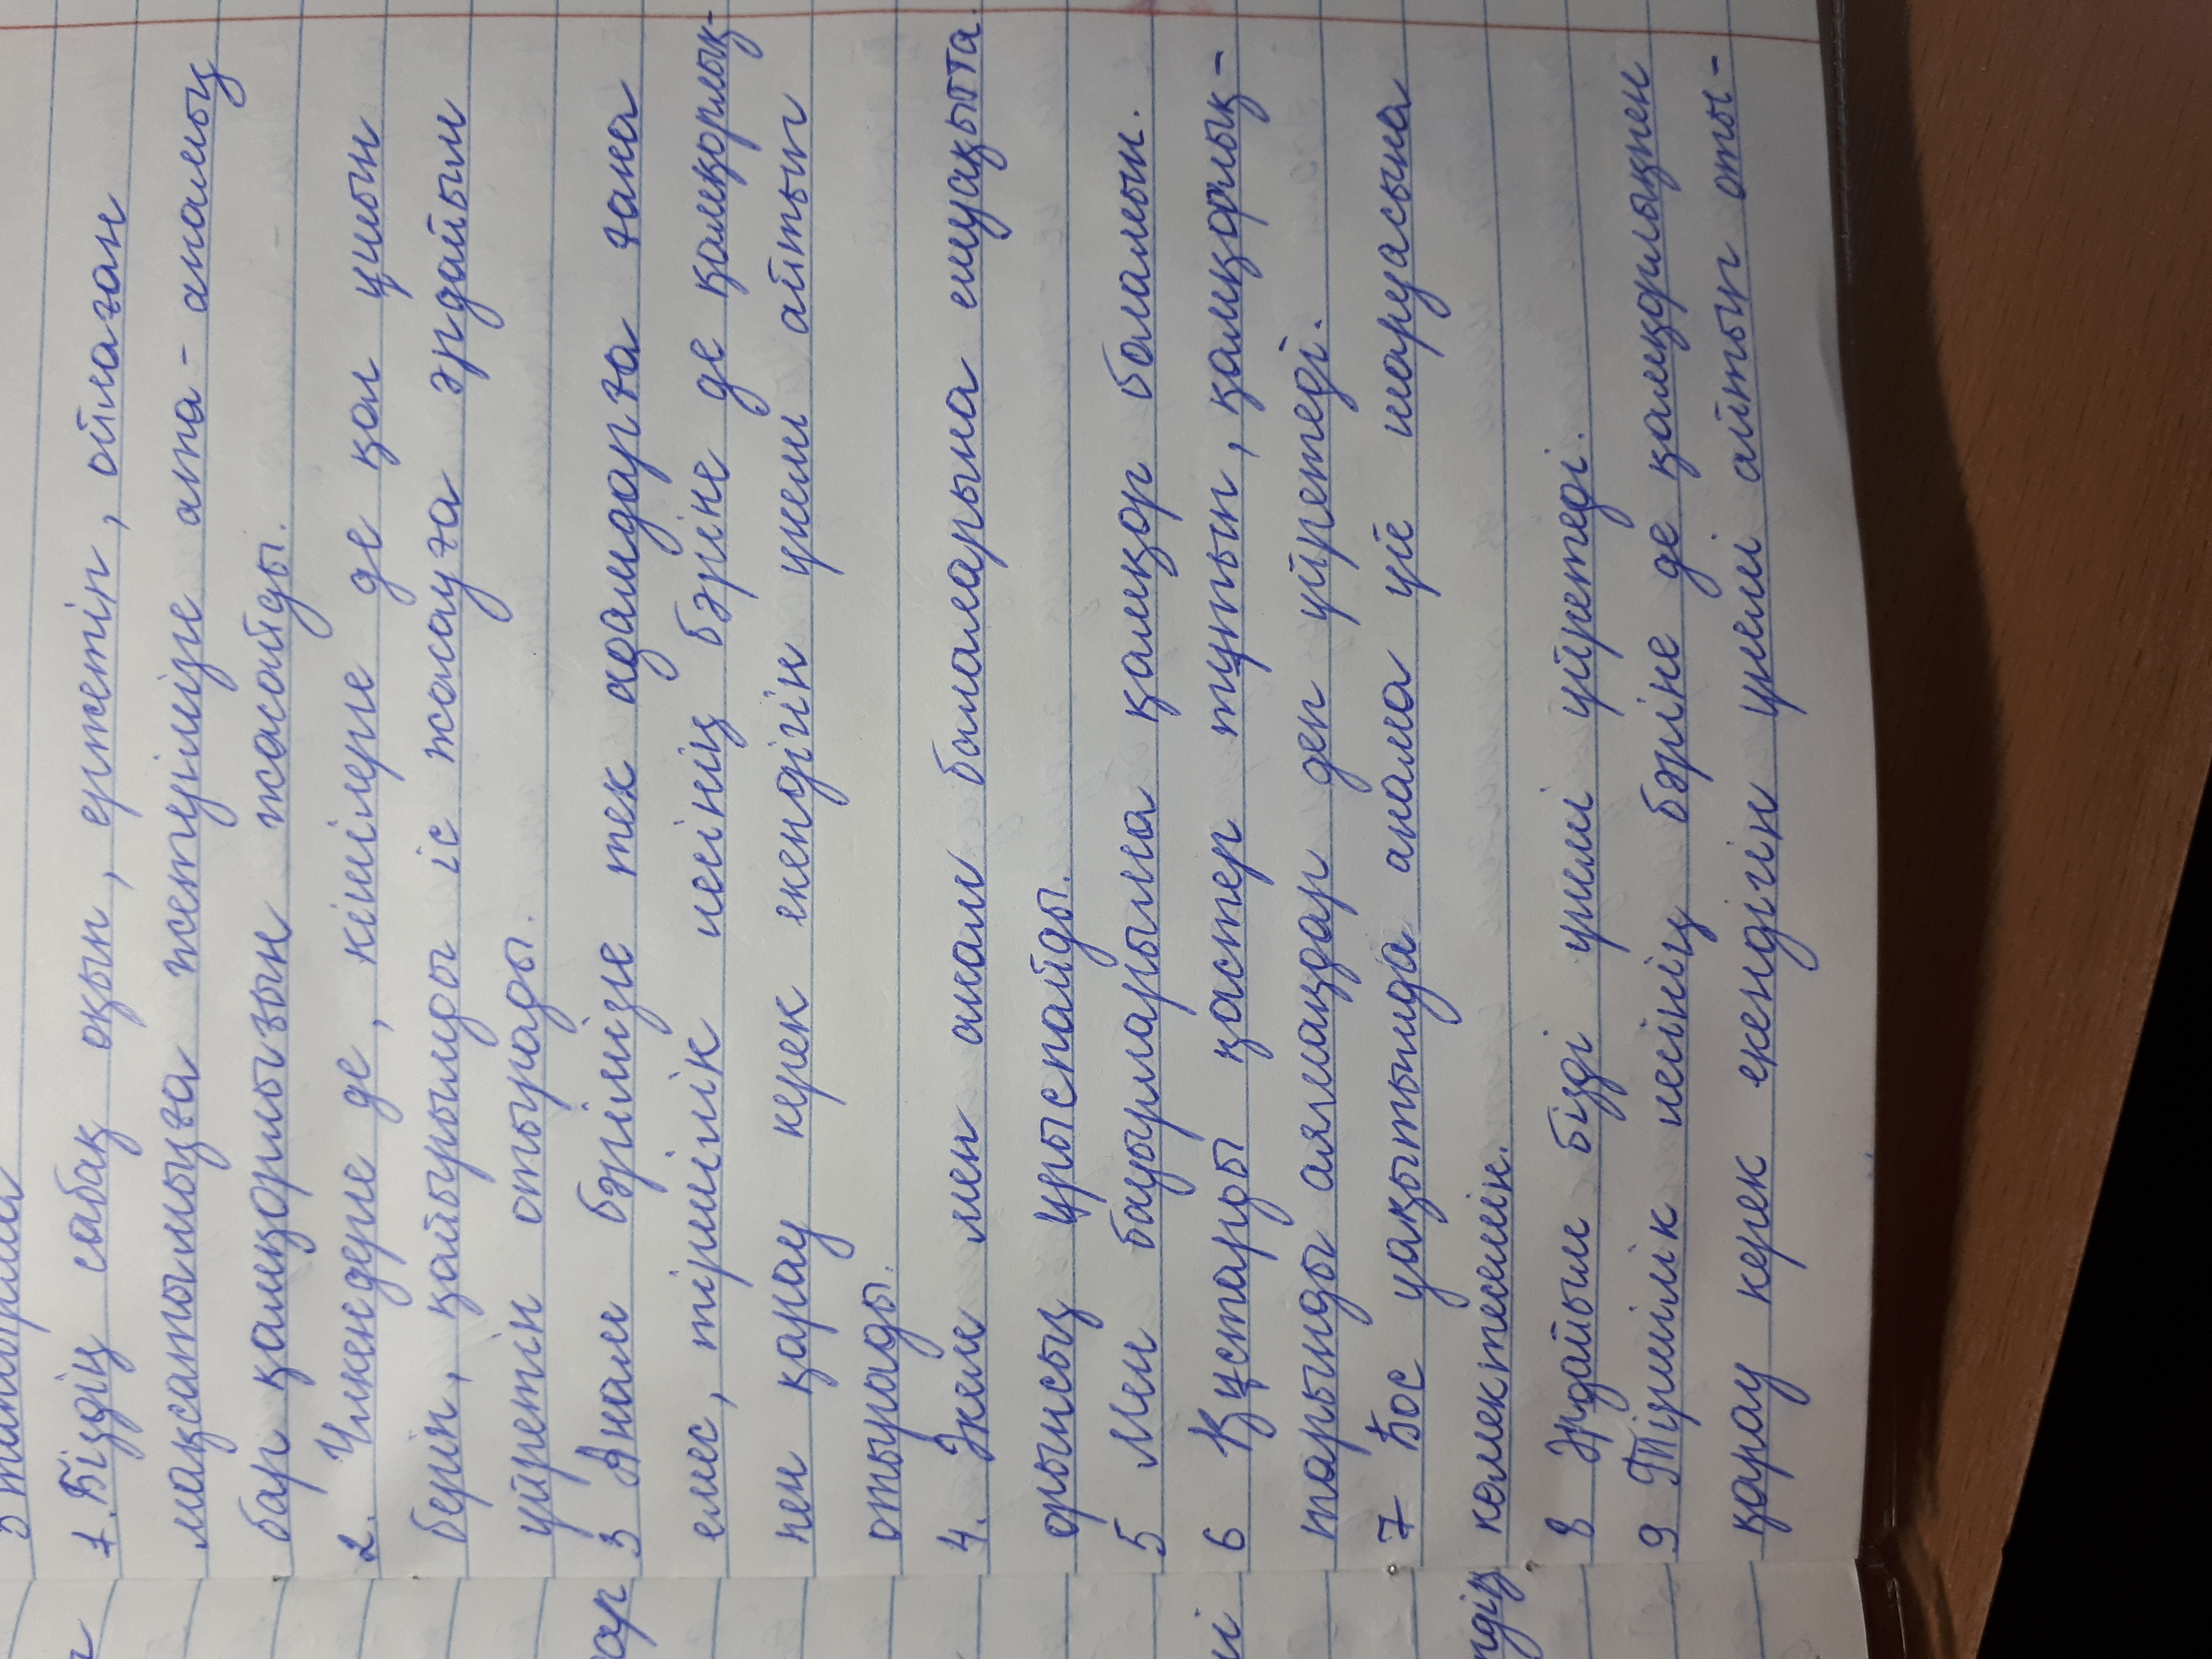 5 тапсырма
1. Біздің сабақ оқып, ержетіп, ойлаған
мақсатымызға жетуімізге ата-анамыз
бар қамқорлығын жасайды.
2. Үлкендерге де, кішілерге де қол ұшын
беріп, қайырымды іс жасауға әрдайым
үйретіп отырады.
3 Анам бәрімізге тек адамдарға ғана
емес, тіршілік иесінің бәріне де қамқорлық-
пен қарау керек екендігін үнемі айтып
отырады.
4. Әкем мен анам балаларына ешуақытта
орынсыз ұрыспайды.
5 Мен бауырларыма қамқор боламын.
6 Құстарды қастер тұтып, қамқорлық-
тарыңды аямаңдар деп үйретеді.
7 Бос уақытымда анама үй шаруасына
көмектесемін.
8 Әрдайым бізді үнемі үйретеді.
9 Тіршілік иесінің бәріне де қамқорлықпен
қарау керек екендігін үнемі айтып оты-